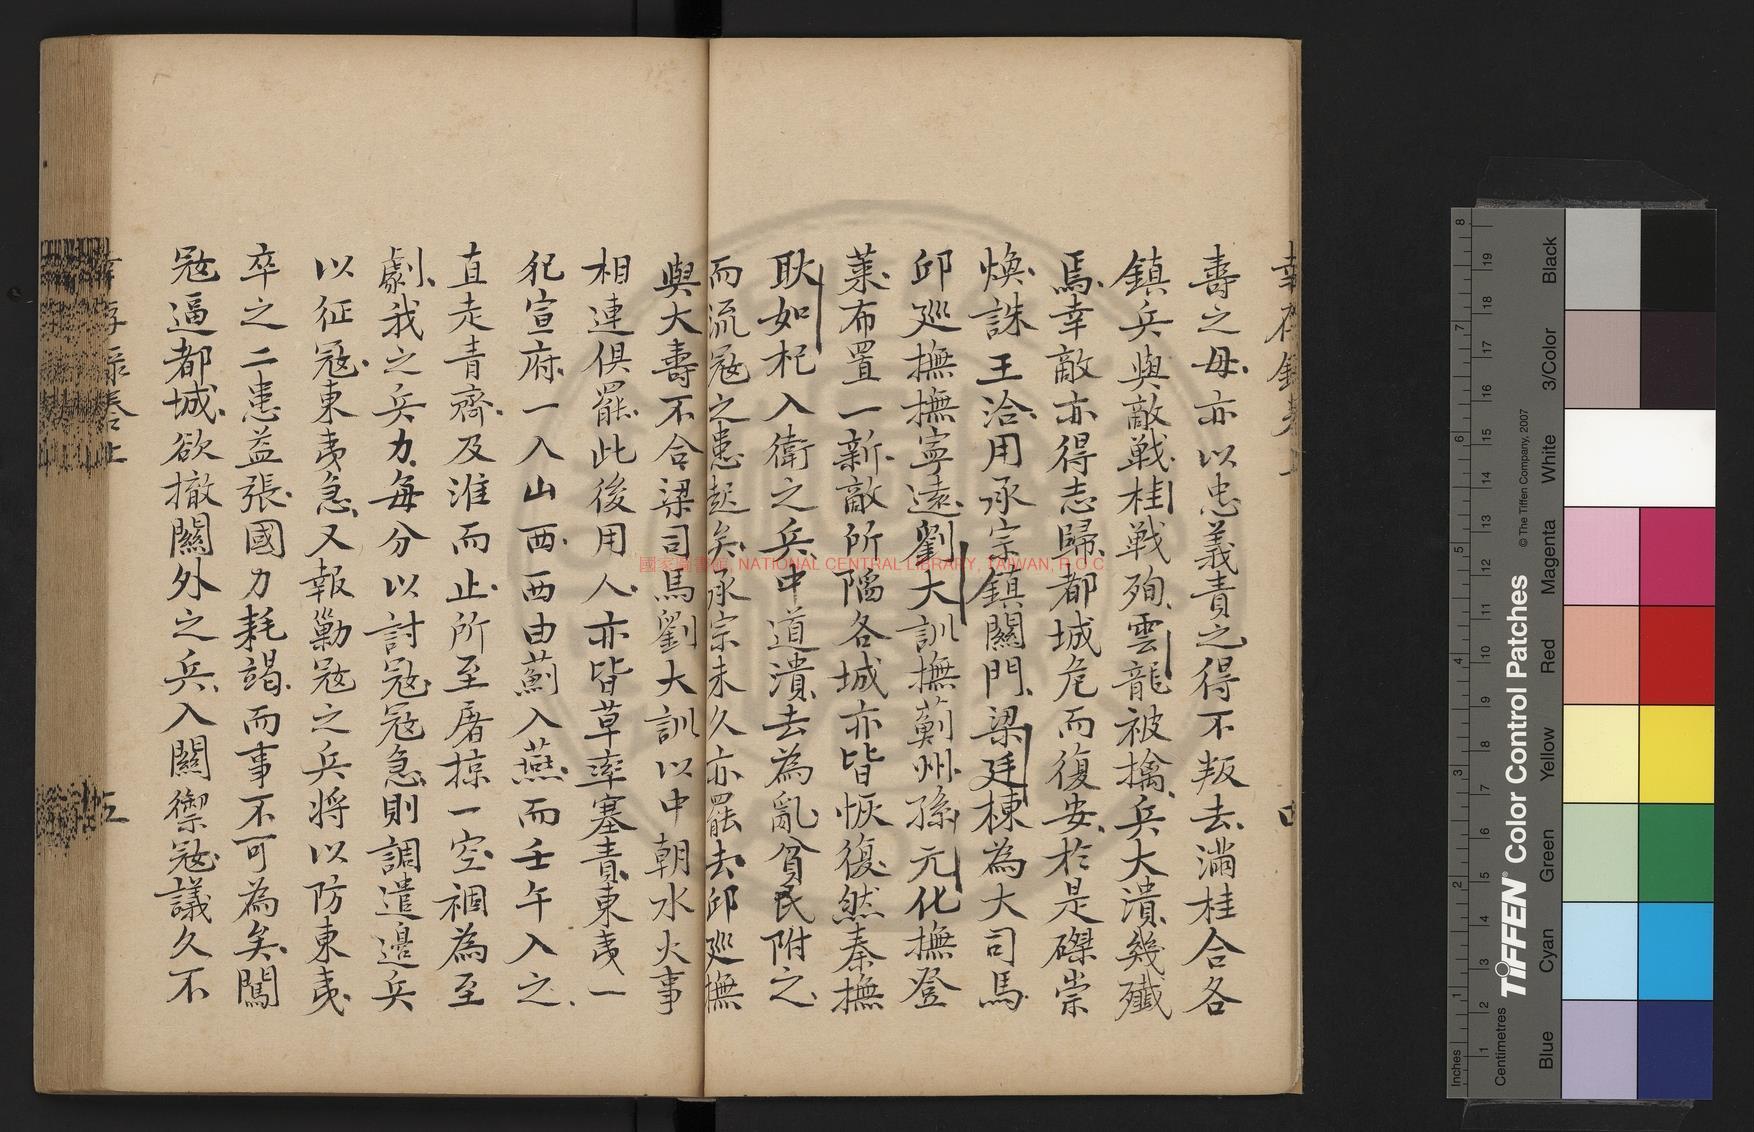 幸存錄卷上
四
壽之母亦以忠義責之得不叛去滿桂合各
鎮兵與敵戰桂戰殉雲龍被擒兵大潰幾殲
焉幸敵亦得志歸都城危而復安於是磔崇
煥誅王洽用承宗鎮關門梁廷棟為大司馬
邱廵撫撫寧遠劉大訓撫薊州孫元化撫登
萊布置一新敵所陷各城亦皆恢復然秦撫
耿如杞入衛之兵中道潰去為亂貧民附之
而流寇之患起矣承宗未久亦罷去邱廵撫
與大壽不合梁司馬劉大訓以中朝水火事
相連俱罷此後用人亦皆草率塞責東夷一
犯宣府一入山西西由薊入燕而壬午入之
直走青齊及淮而止所至屠掠一空禍為至
劇我之兵力每分以討寇寇急則調遣邊兵
以征寇東夷急又報勦寇之兵將以防東夷
卒之二患益張國力耗竭而事不可為矣闖
寇逼都城欲撤關外之兵入關禦寇議久不
幸存錄卷上
五
國家圖書館, NATIONAL CENTRAL LIBRARY, TAIWAN, R.O.C
Inches
Centimetres
TIFFEN Color Control Patches
© The Tiffen Company, 2007
Blue
Cyan
Green
Yellow
Red
Magenta
White
3/Color
Black